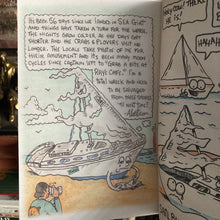 ITS BEEN 56 DAYS SINCE WE LANDED IN SEA GIRT
AND THINGS HAVE TAKEN A TURN FOR THE WORSE.
THE NIGHTS GROW COLDER AS THE DAYS GET
SHORTER AND THE CRABS & PLOVERS VISIT NO
LONGER. THE LOCALS TAKE PHOTOS OF ME FOR
THEIR AMUSEMENT AND ITS BEEN MANY MOON
CYCLES SINCE CAPTAIN LEFT TO "GRAB A BITE AT
RAY'S CAFE." I'M A
TOTAL WRECK AND NEED
TO BE SALVAGED
FROM THESE SHORES
HEY LOOK! THERE
HE IS!
HAHAHA